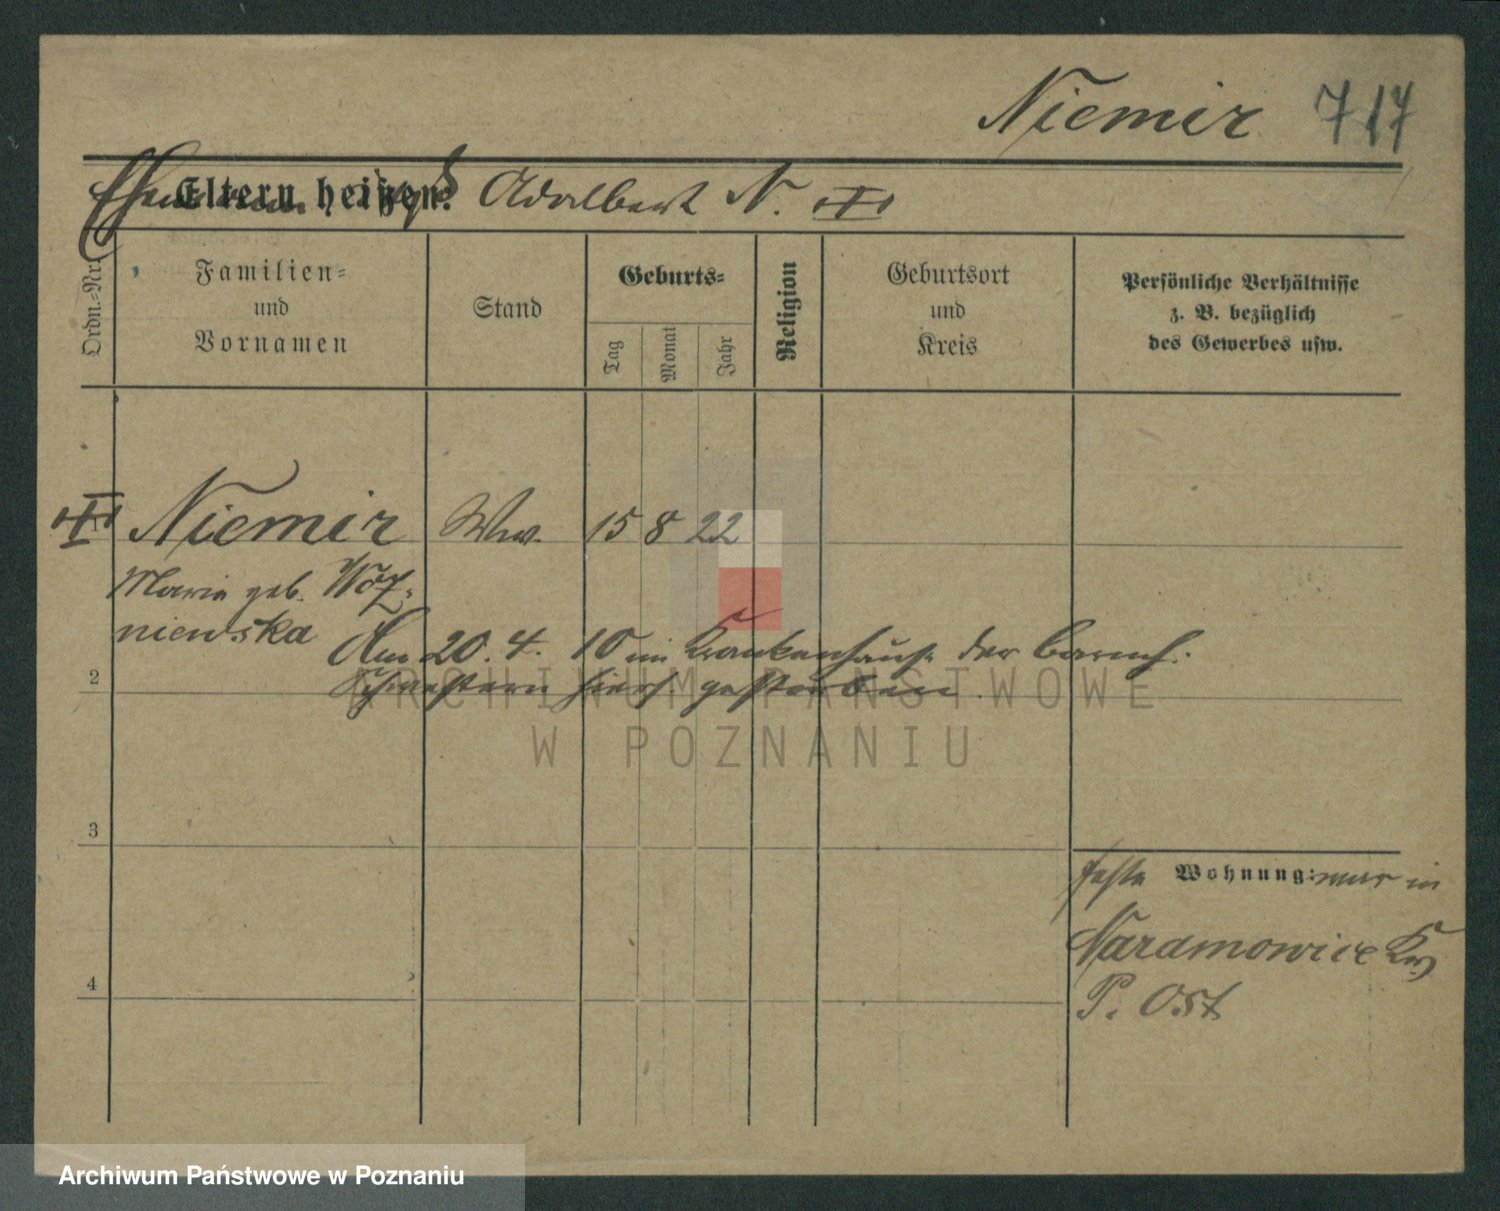 Niemir 717
Eltern heißen: Adalbert N.
Ordn.-Nr.
Familien-
und
Vornamen
Stand
Geburts-
Tag
Monat
Jahr
Religion
Geburtsort
und
Kreis
Persönliche Verhältnisse
z. B. bezüglich
des Gewerbes usw.
Niemir Ww. 15 8 22
Maria geb. Woź-
niewska
Am 20. 4. 10 im Krankenhause der barmh.
2 Schwestern hiers. gestorben.
ARCHIWUM PAŃSTWOWE
W POZNANIU
3
feste Wohnung: war in
Naramowice Krs
4
P. Ost
Archiwum Państwowe w Poznaniu